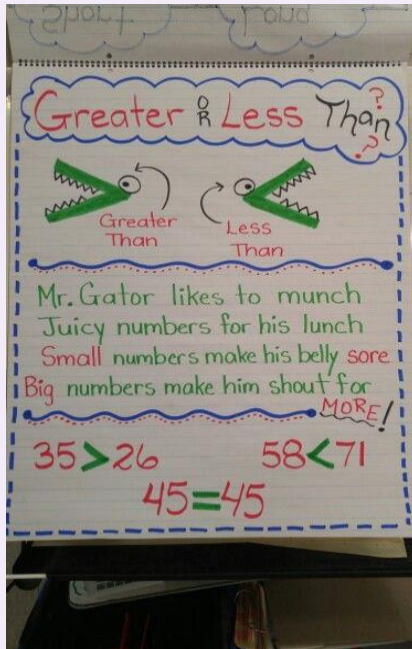 Short Long
Greater OR Less Than??
Greater Than
Less Than
Mr. Gator likes to munch
Juicy numbers for his lunch
Small numbers make his belly sore
Big numbers make him shout for
MORE!
35>26 58<71
45=45